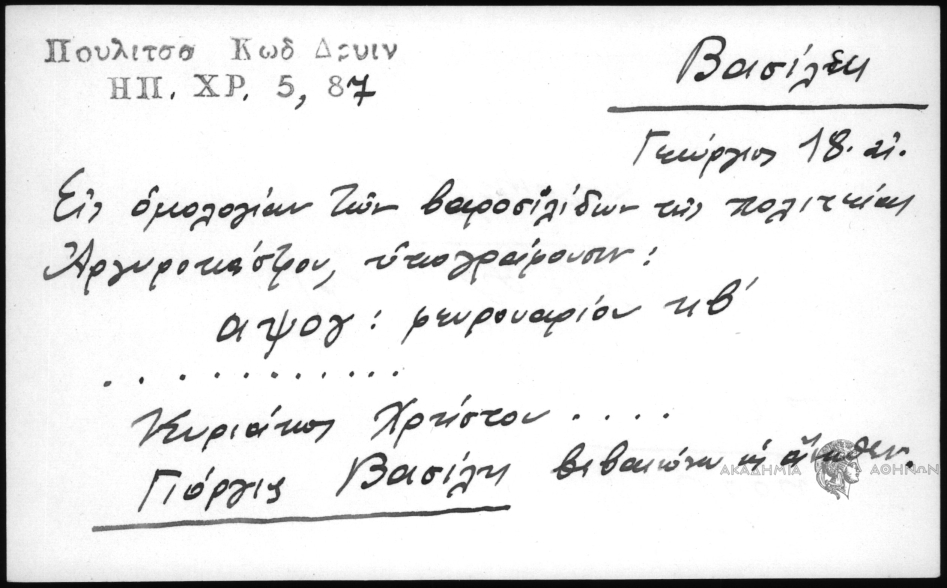 Πουλιτσα Κωδ Δρυιν
ΗΠ. ΧΡ. 5, 87
Βασίλης
Γεώργιος 18. αἰ.
Εἰς ὁμολογίαν τῶν βαροσιλίδων τῆς πολιτείας
Ἀργυροκάστρου, ὑπογράφουσιν:
αψογ: φευρουαρίου κβ'
. . . . . . . . . . . .
Κυριάκος Χρήστου . . . .
Γιόργις Βασίλη βεβαιώνω
ΑΚΑΔΗΜΙΑ ΑΘΗΝΩΝ